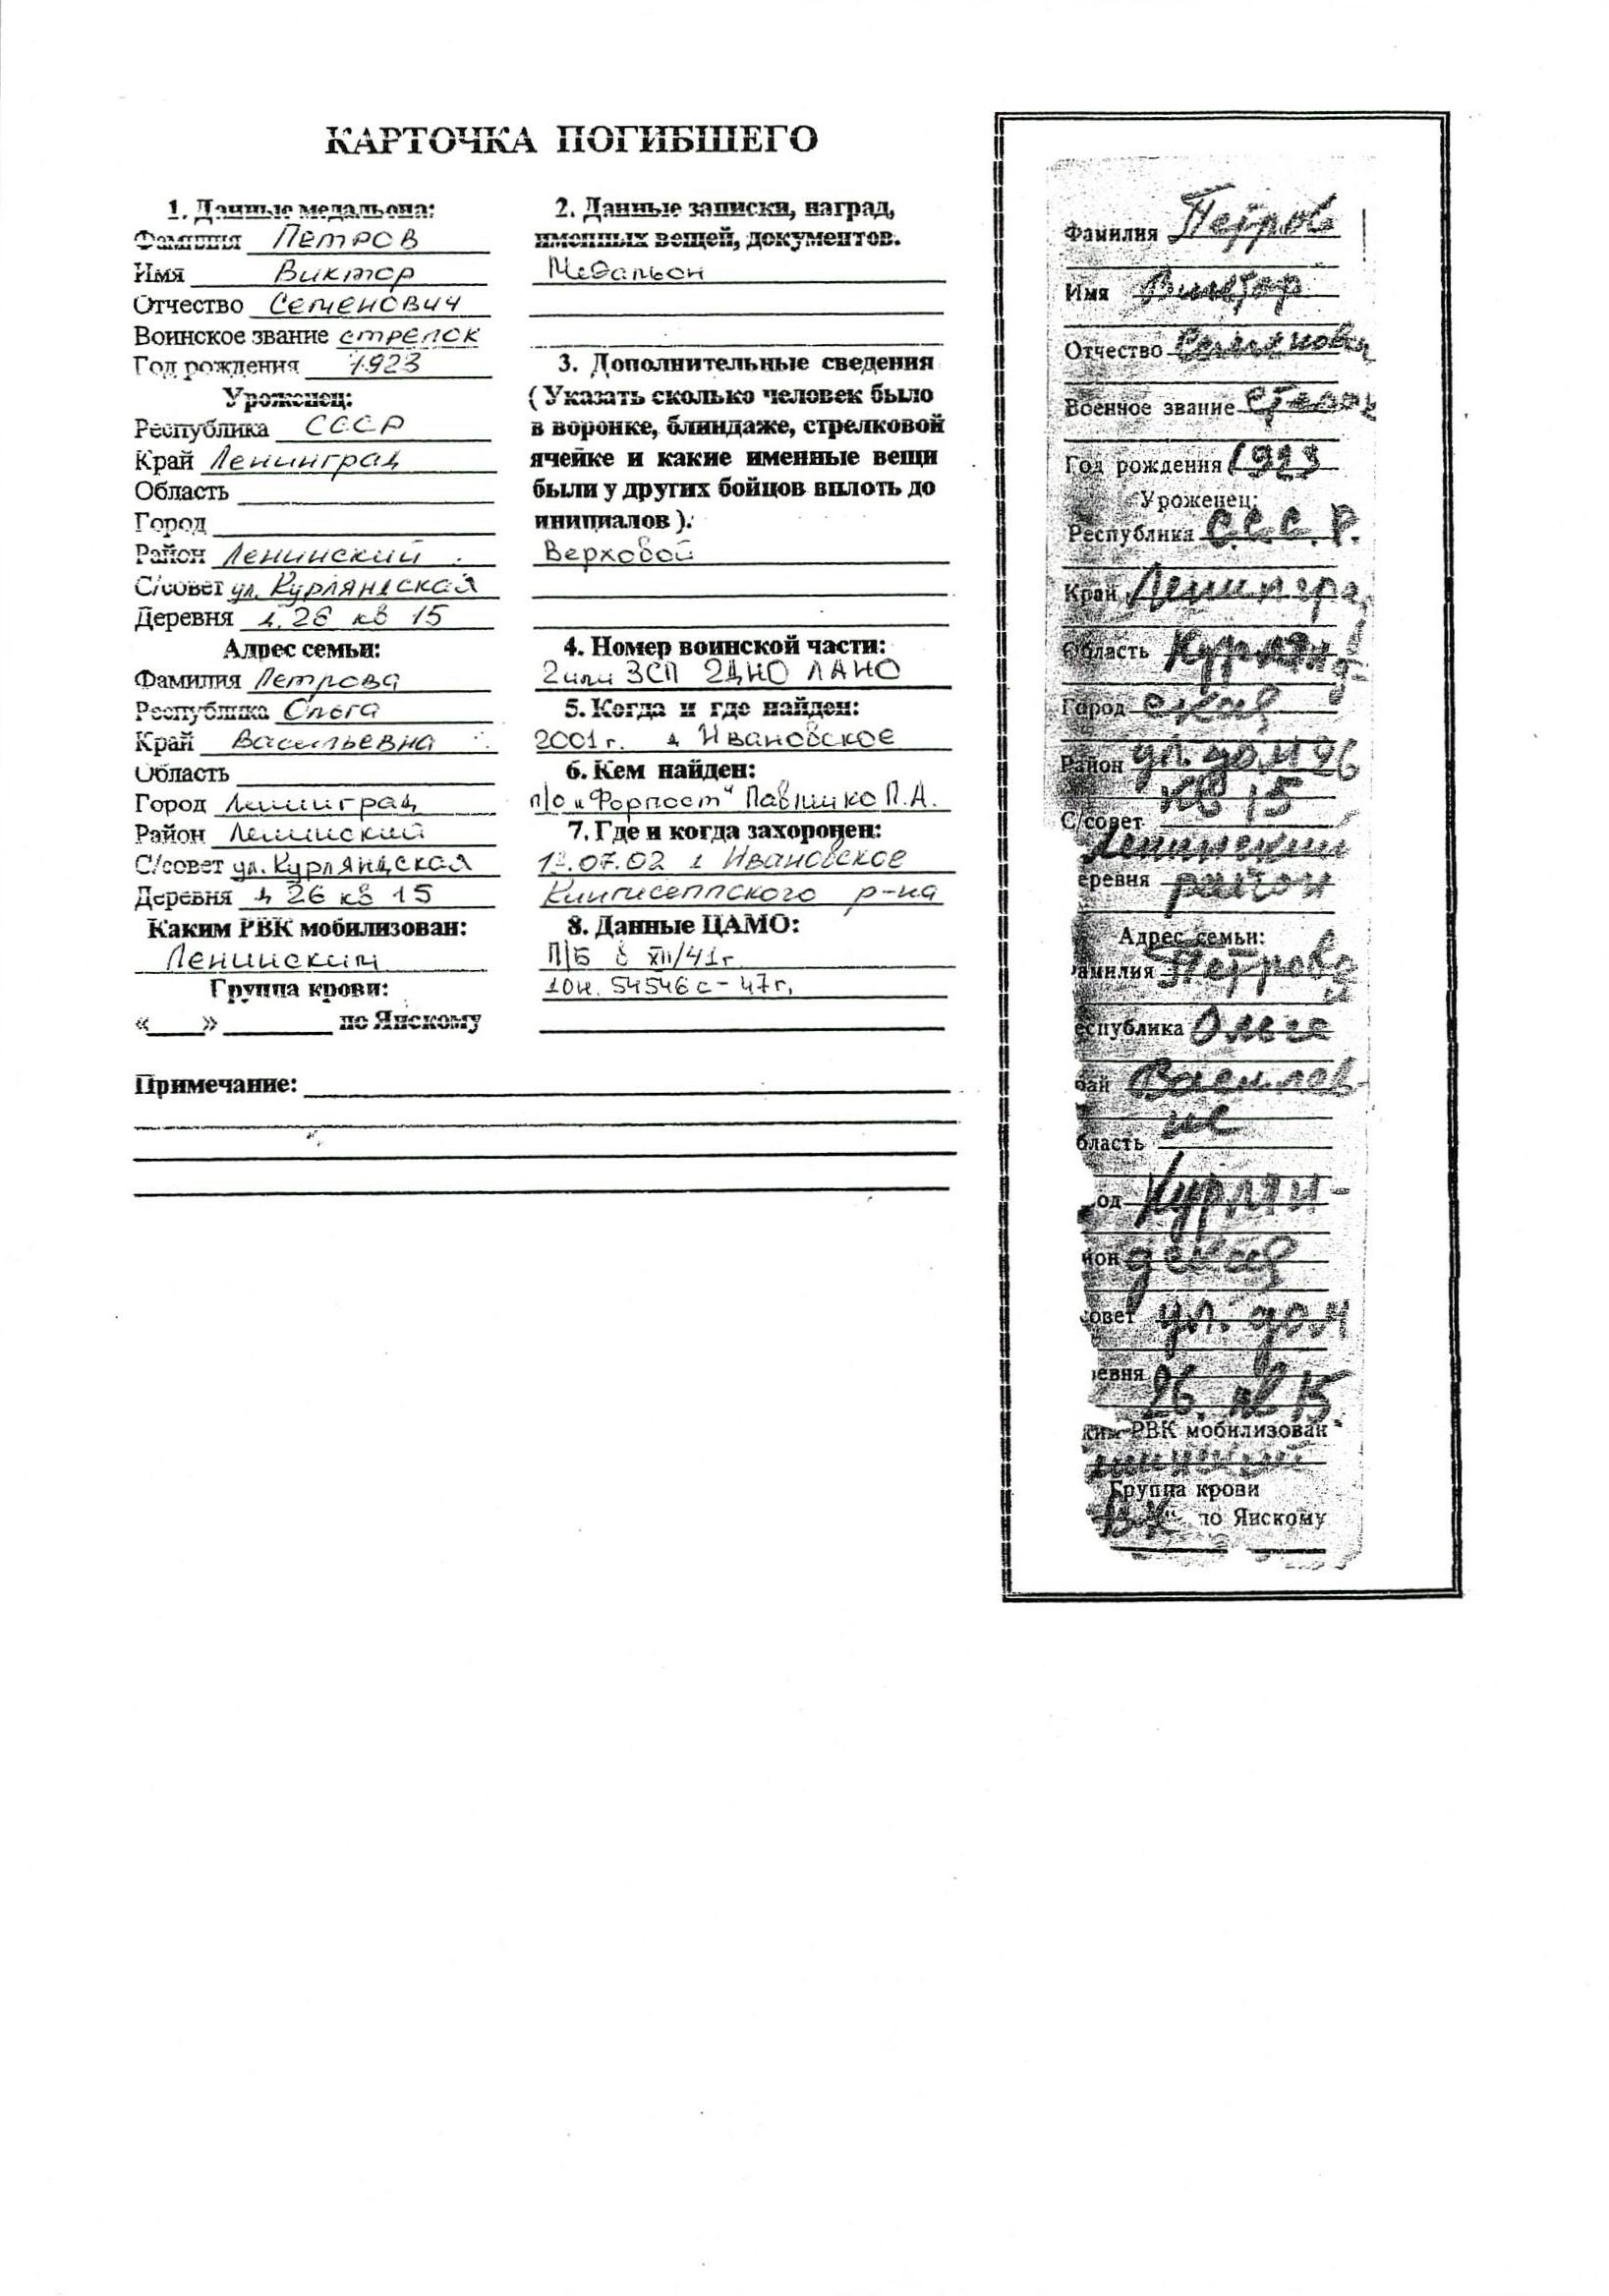 КАРТОЧКА ПОГИБШЕГО
1. Данные медальона:
Фамилия Петров
Имя Виктор
Отчество Семенович
Воинское звание стрелок
Год рождения 1923
Уроженец:
Республика СССР
Край Ленинград
Область
Город
Район Ленинский
С/совет ул. Курляндская
Деревня д. 26 кв 15
Адрес семьи:
Фамилия Петрова
Республика Ольга
Край Васильевна
Область
Город Ленинград
Район Ленинский
С/совет ул. Курляндская
Деревня д 26 кв 15
Каким РВК мобилизован:
Ленинским
Группа крови:
« » по Янскому
Примечание:
2. Данные записки, наград,
именных вещей, документов.
Медальон
3. Дополнительные сведения
( Указать сколько человек было
в воронке, блиндаже, стрелковой
ячейке и какие именные вещи
были у других бойцов вплоть до
инициалов ).
Верховой
4. Номер воинской части:
2 или 3СП 2ДНО ЛАНО
5. Когда и где найден:
2001г. д Ивановское
6. Кем найден:
п/о "Форпост" Павлишко П.А.
7. Где и когда захоронен:
07.02 д Ивановское
Кингисеппского р-на
8. Данные ЦАМО:
П/Б с XII/41г.
оп. 54546с-47г.
Фамилия Петров
Имя Виктор
Отчество Семенович
Военное звание
Год рождения 1923
Уроженец:
Республика С.С.С.Р.
Край Ленинград
Область Курлянд-
Город ская
Район ул. дом 26
кв 15
С/совет
Ленинский
еревня район
Адрес семьи:
амилия Петрова
еспублика Ольге
рай Василев-
не
бласть
од Курлян-
йон дская
совет ул. дом
евня 26. кв 15
ким РВК мобилизован
нинский
Группа крови
ВК по Янскому